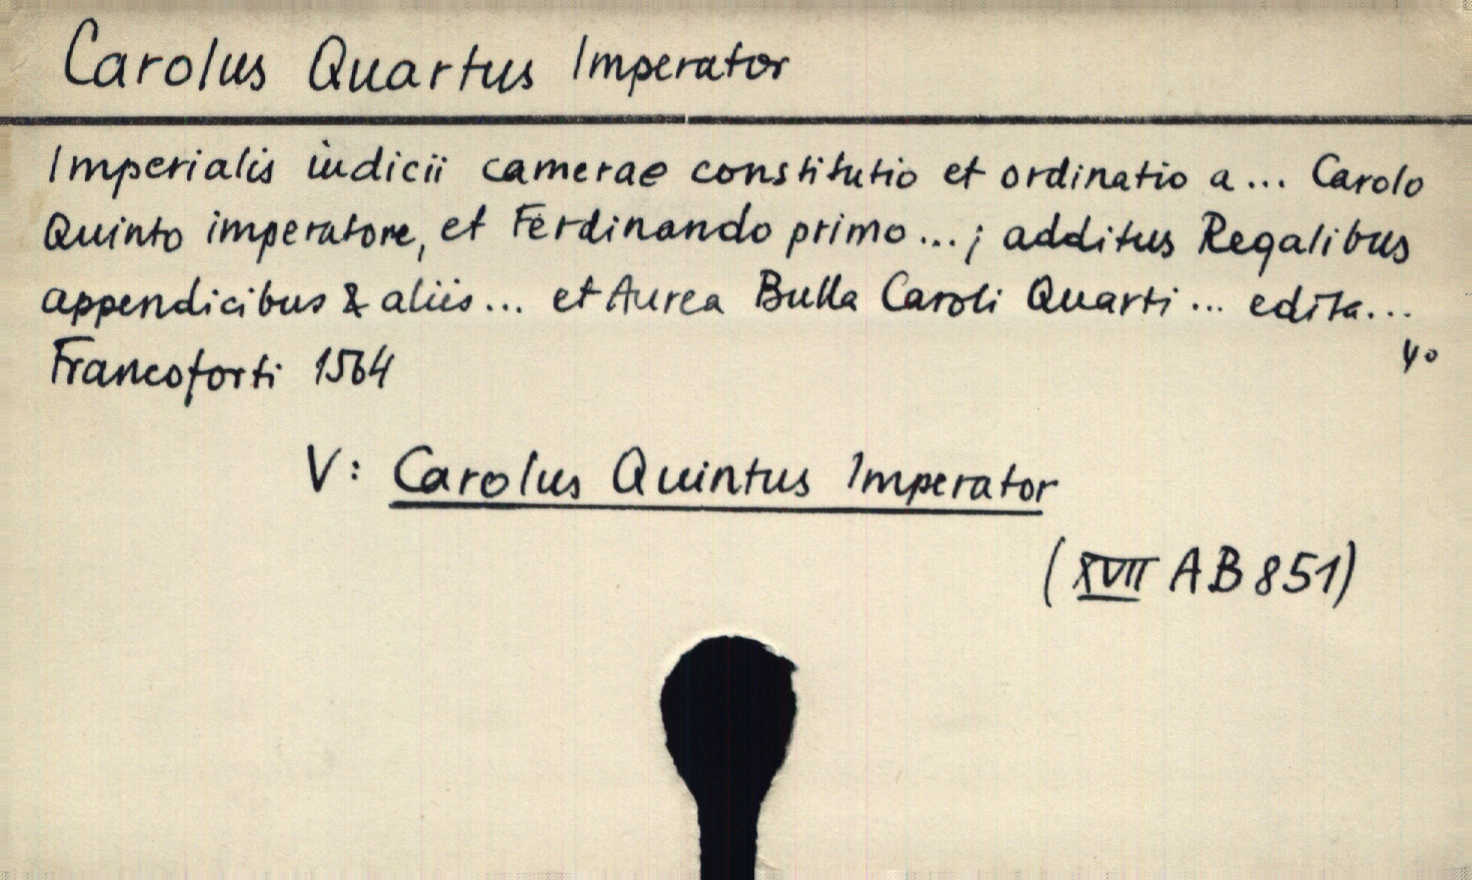 Carolus Quartus Imperator
Imperialis iudicii camerae constitutio et ordinatio a... Carolo
Quinto imperatore, et Ferdinando primo ...; additus Regalibus
appendicibus & aliis... et Aurea Bulla Caroli Quarti ... edita...
Francoforti 1564
4o
V: Carolus Quintus Imperator
(XVII AB 851)